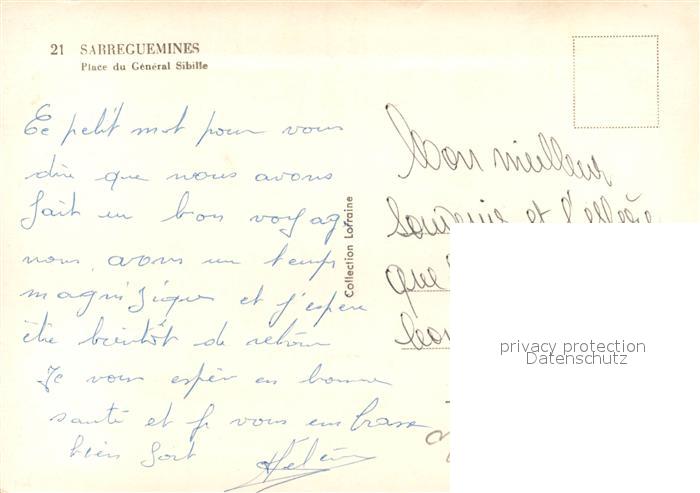 21 SARREGUEMINES
Place du Général Sibille
Ce petit mot pour vous
dire que nous avons
fait un bon voyage
nous avons un temps
magnifique et j'espere
être bientôt de retour
Je vous espèr en bonne
santé et je vous embrasse
bien fort
Collection Lorraine
Mon meilleur
Souvenir et
que
bon
privacy protection
Datenschutz